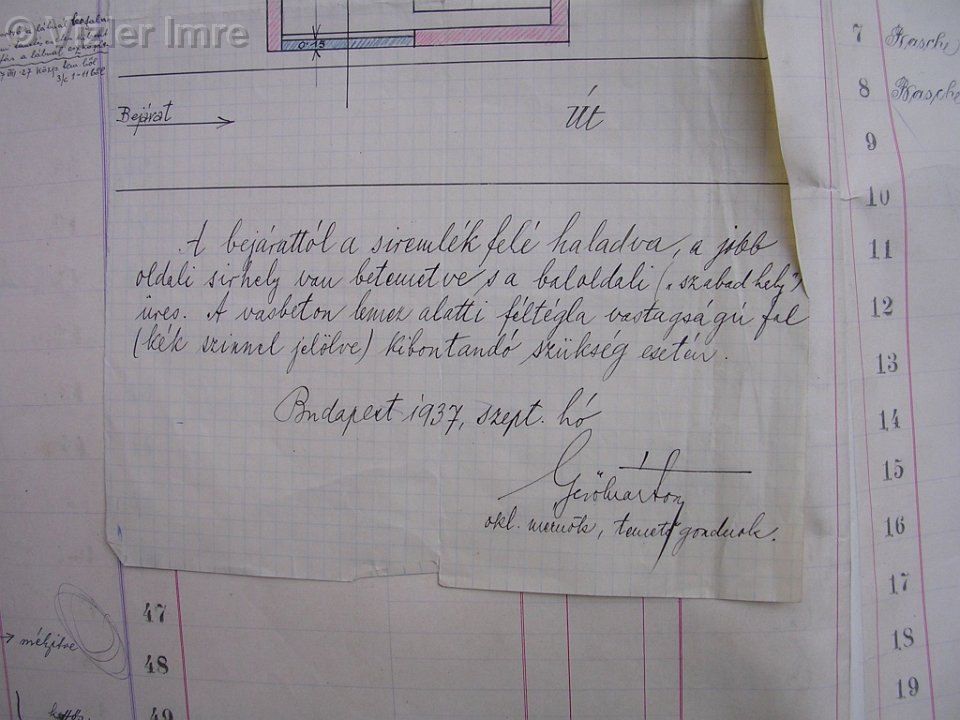 © Vizler Imre
7 III. 27
3/c 1-11 ből
0.15
Bejárat
Út
A bejárattól a siremlék felé haladva, a jobb
oldali sirhely van betemetve s a baloldali („szabad hely")
üres. A vasbeton lemez alatti féltégla vastagságú fal
(kék szinnel jelölve) kibontandó szükség esetén.
Budapest 1937, szept. hó
Gerő Márton
okl. mérnök, temető gondnok.
7 Kasche
8 Kasche
9
10
11
12
13
14
15
16
17
18
19
47
→ mélyitve
48
49